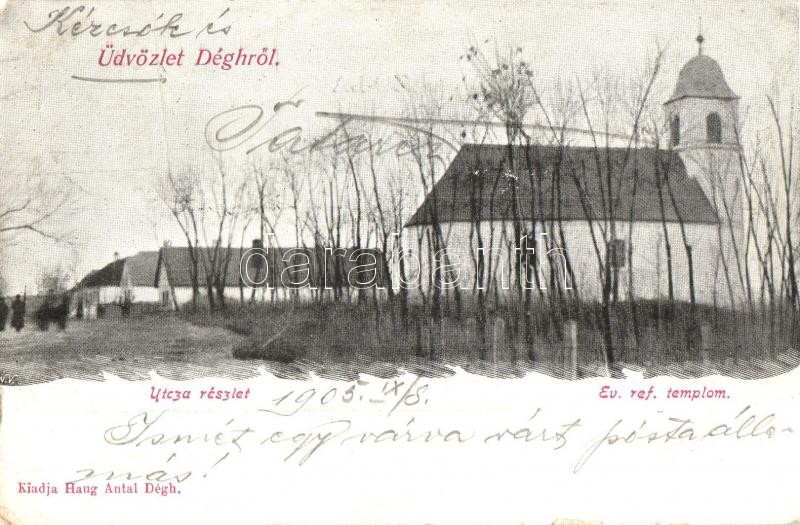 és
Üdvözlet Déghről.
darabanth
Utcza részlet
Ev. ref. templom.
1905. IX/8.
Ismét egy várva várt pósta állo-
más!
Kiadja Haug Antal Dégh.